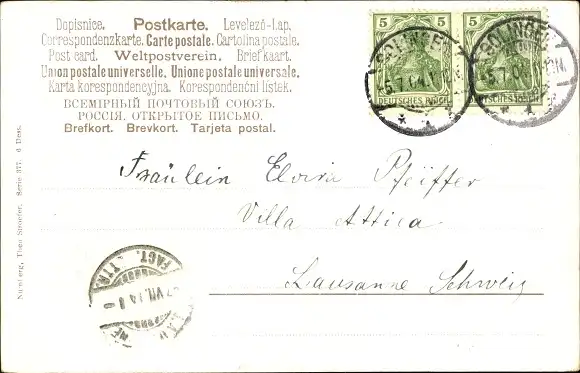 Dopisnice. Postkarte. Levelező-Lap.
Correspondenzkarte. Carte postale. Cartolina postale.
Post card. Weltpostverein. Briefkaart.
Union postale universelle. Unione postale universale.
Karta korespondencyjna. Korespondenční listek.
ВСЕМІРНЫЙ ПОЧТОВЫЙ СОЮЗЪ.
РОССІЯ. ОТКРЫТОЕ ПИСЬМО.
Brefkort. Brevkort. Tarjeta postal.
5 5 5
DEUTSCHES REICH
DEUTSCHES REICH
SOLINGEN
5.7.04
SOLINGEN
5.7.04
Fräulein Elvira Pfeiffer
Villa Attica
Lausanne Schweiz
FACT. TTR.
VII.04
Nürnberg, Theo Stroefer. Serie 377. 6 Dess.